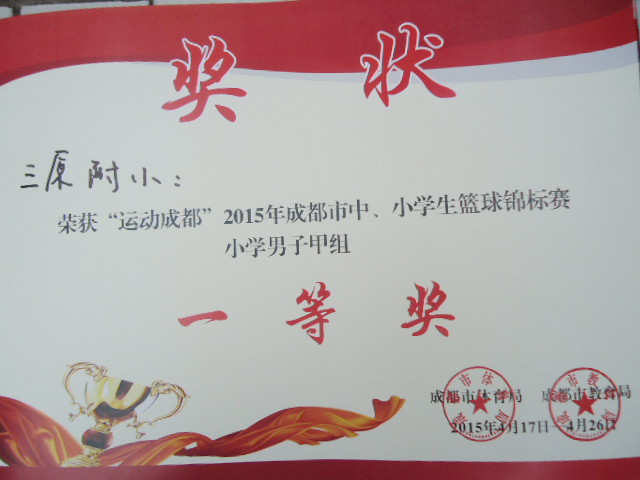 奖 状
三原附小:
荣获“运动成都”2015年成都市中、小学生篮球锦标赛
小学男子甲组
一 等 奖
成都市体育局 成都市教育局
2015年4月17日—4月26日